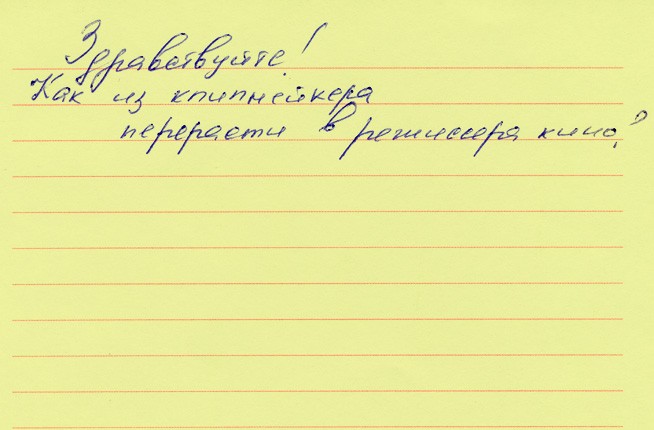 Здравствуйте!
Как из клипмейкера
перерасти в режиссера кино?